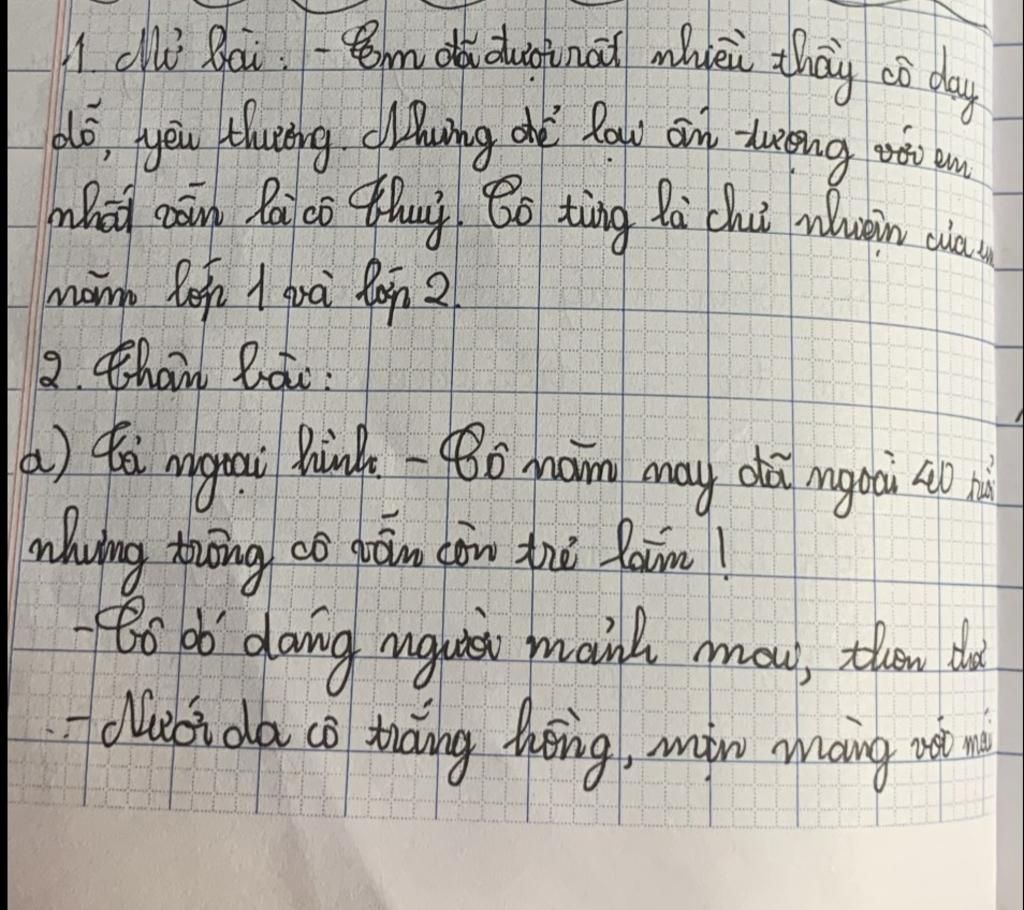 1. Mở bài: - Em đã được rất nhiều thầy cô dạy
dỗ, yêu thương. Nhưng để lại ấn tượng với em
nhất vẫn là cô Thuỷ. Cô từng là chủ nhiệm của em
năm lớp 1 và lớp 2.
2. Thân bài:
a) Tả ngoại hình. - Cô năm nay đã ngoài 40 tuổi
nhưng trông cô vẫn còn trẻ lắm!
- Cô có dáng người mảnh mai, thon thả
- Nước da cô trắng hồng, mịn màng với